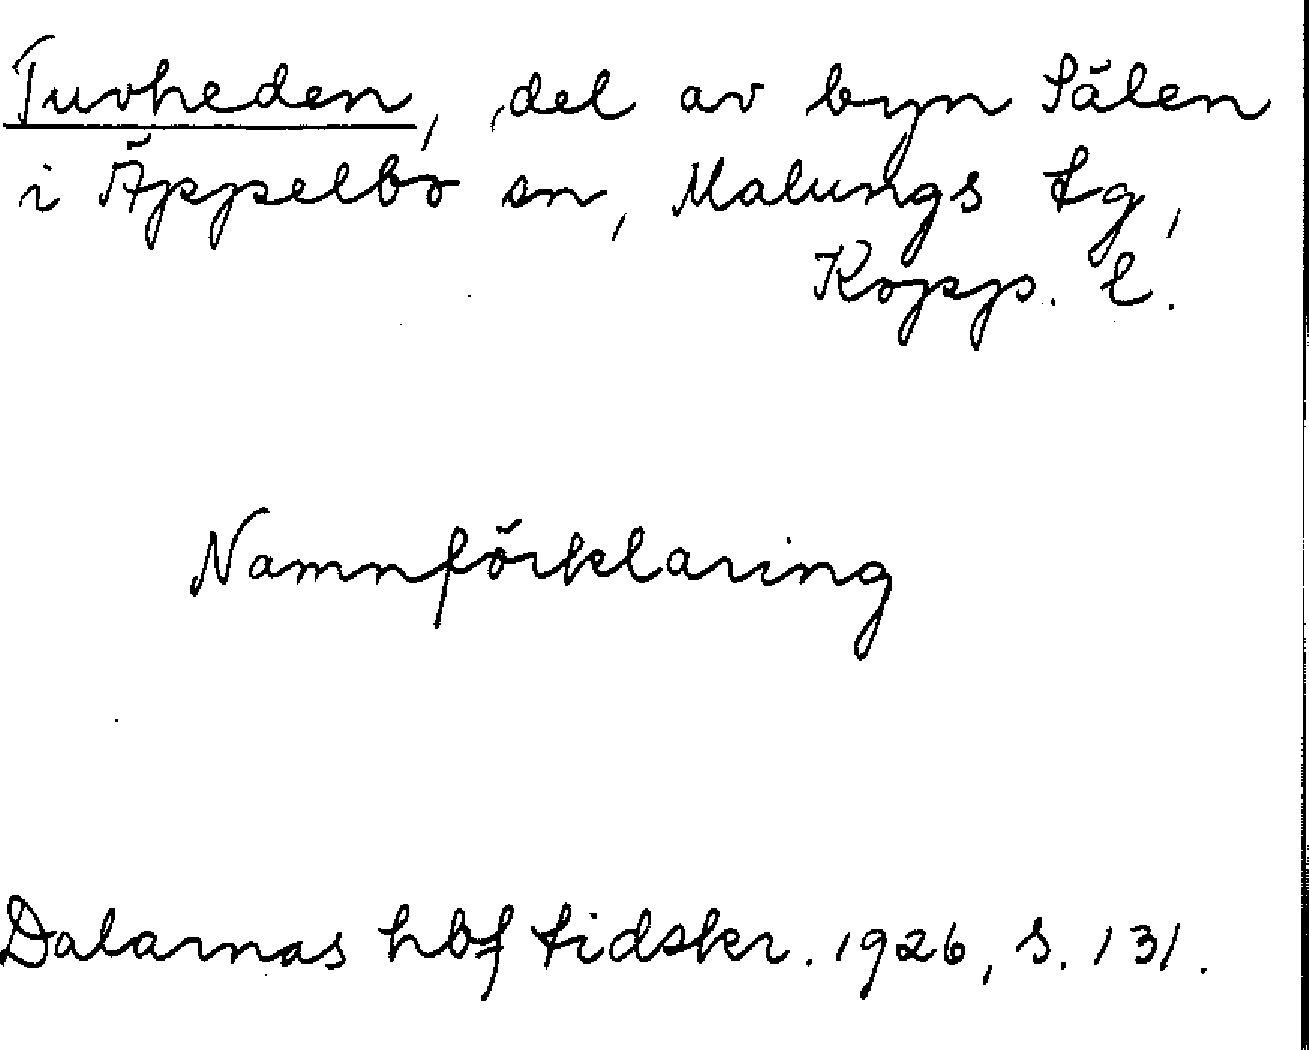 Tuvheden, del av byn Sälen
i Äppelbo sn, Malungs tg,
Kopp. l.
Namnförklaring
Dalarnas hbf tidskr. 1926, s. 131.